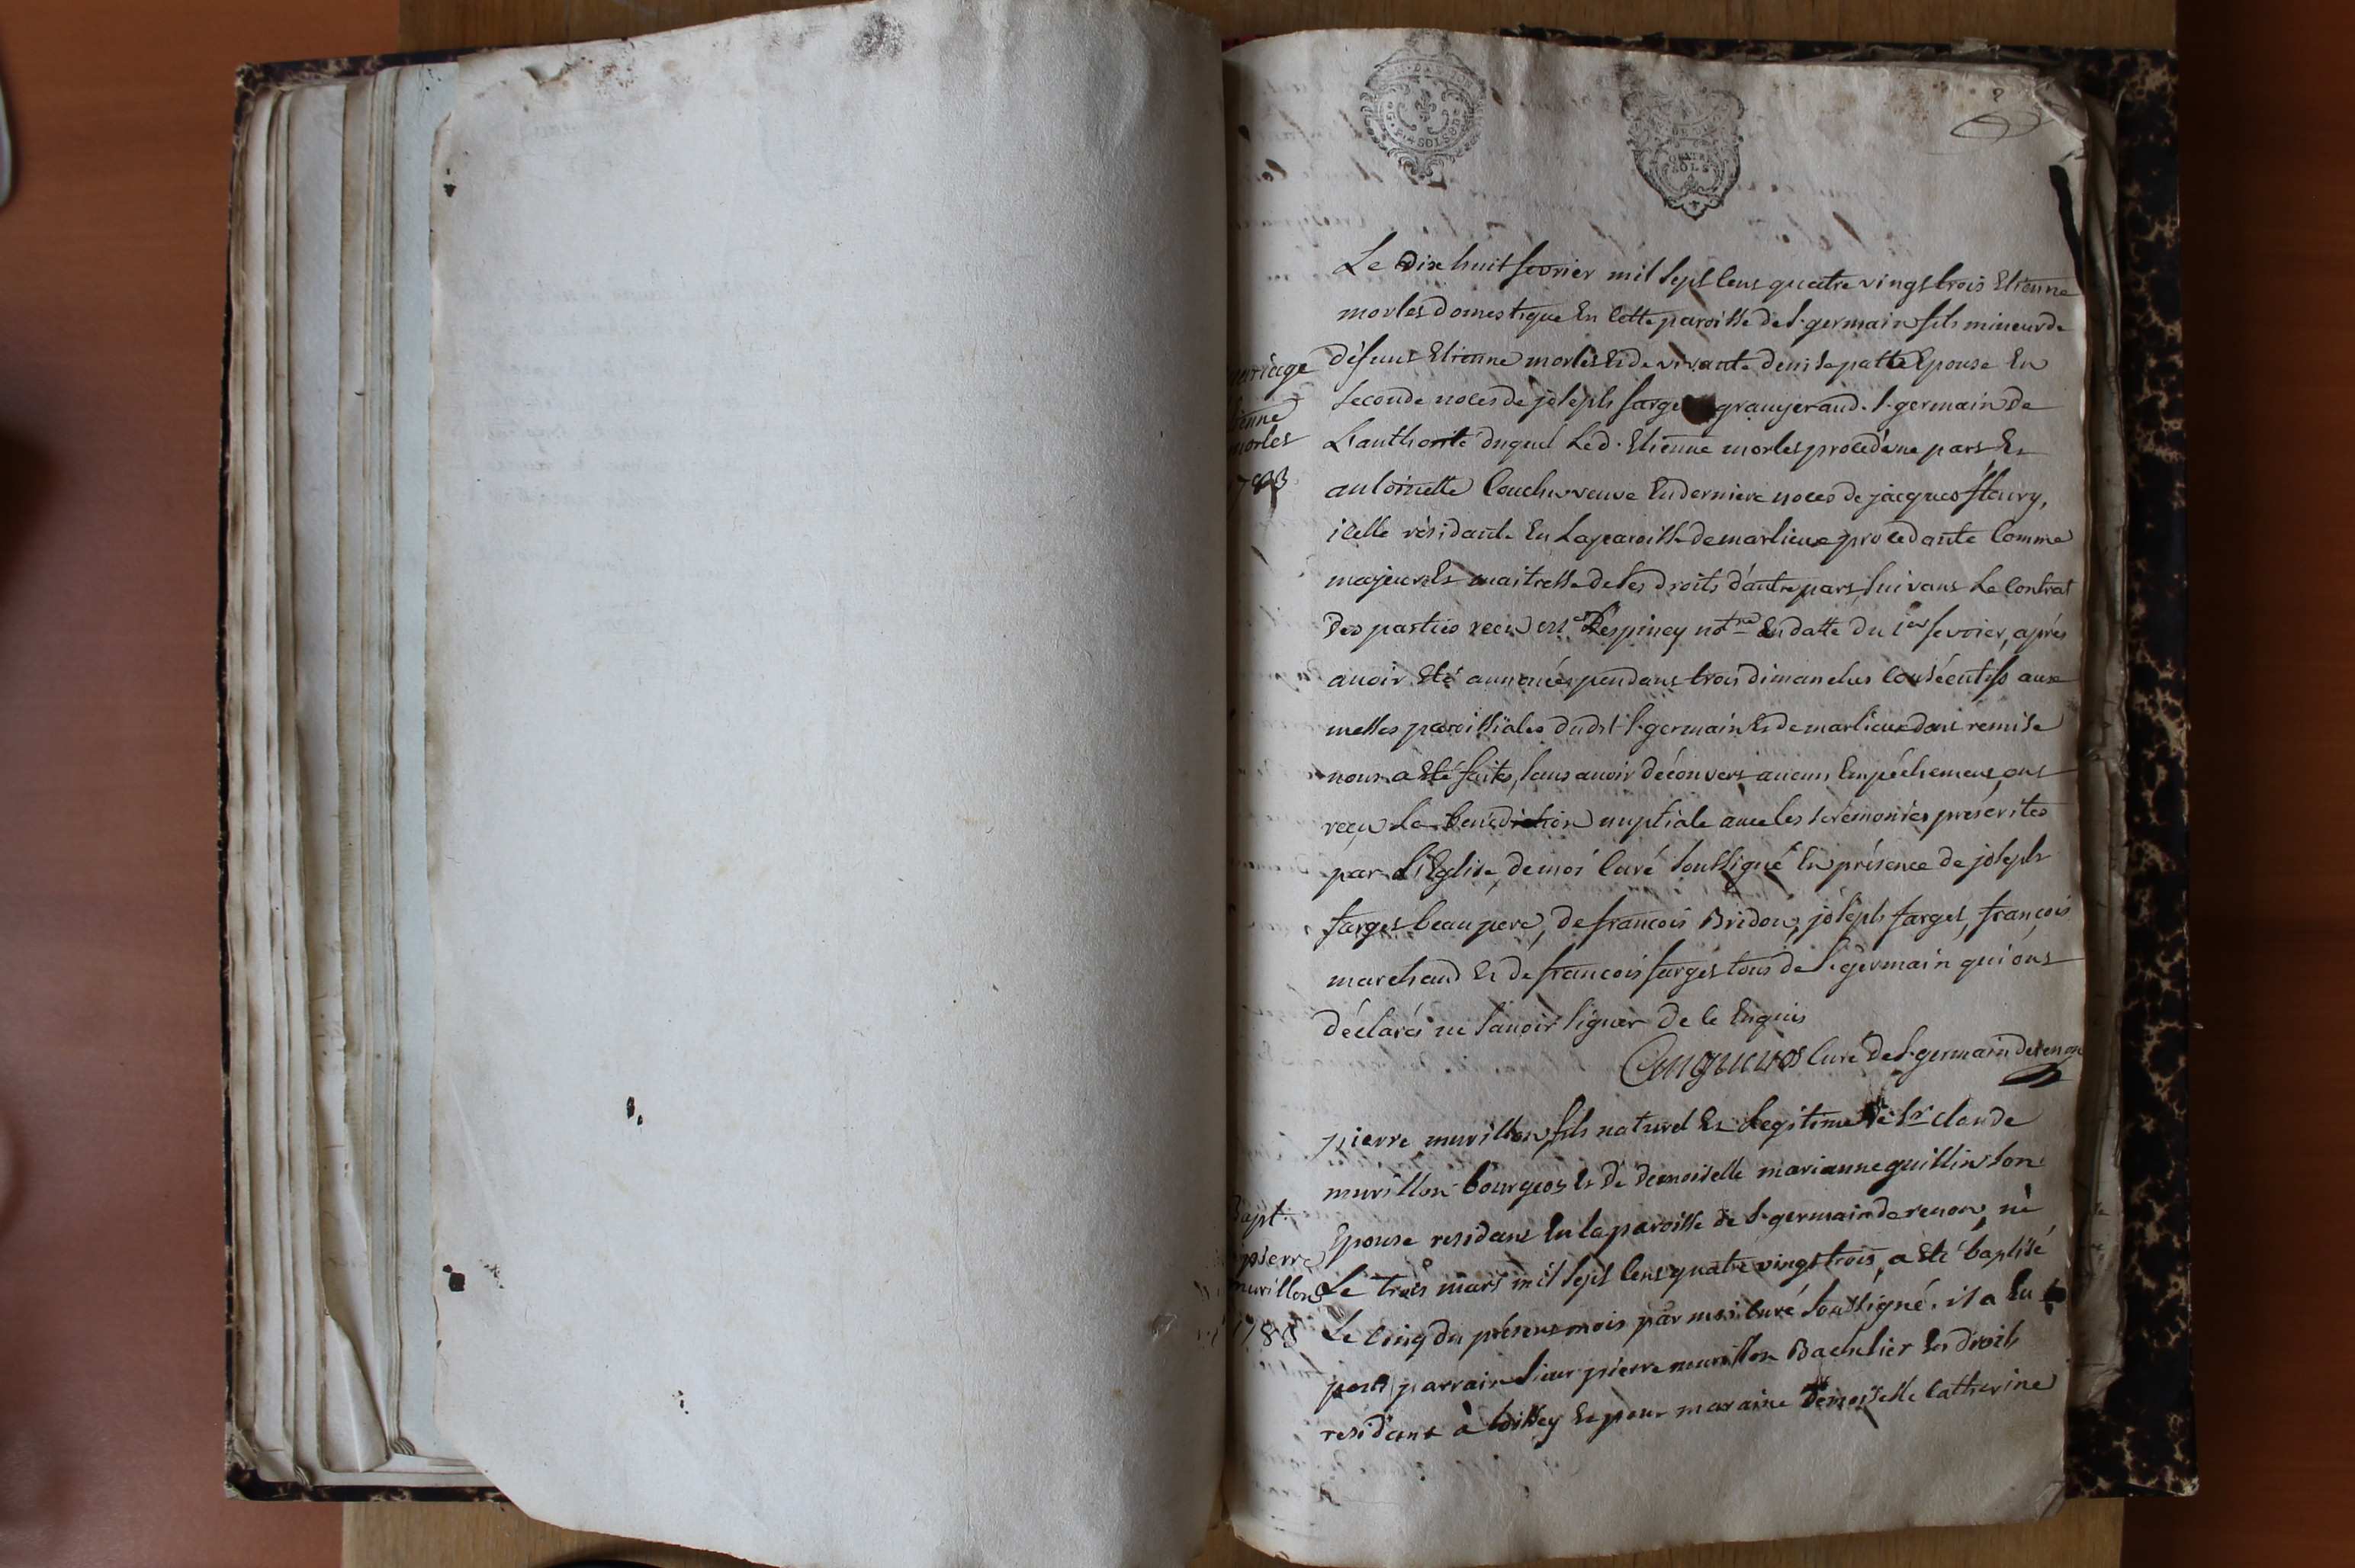 QUATRE
SOLS
Le Dix huit fevrier mil sept cens quatre vingt trois Etienne
morles domestique En cette paroisse de St germain fils mineur de
défunt Etienne morles Et de vivante denise patte Epouse En
mariage
seconde noces de joseph farge granger aud. St germain de
Etienne
morles
L'authorité duquel Led. Etienne morles procede d'une part Et
1783
antoinette Couche veuve En derniere noces de jacques fleury,
icelle résidante En La paroisse de marlieux procedante Comme
majeure Et maitresse de ses droits d'autre part, suivant Le Contrat
Des parties recu Me Despiney notre En datte du 1er fevrier, après
avoir Eté annoncés pendant trois dimanches Consécutifs aux
messes paroissiales dudt St germain Et de marlieux dont remise
nous a Eté faite, sans avoir découvert aucun Empéchement, ont
reçu La bénédiction nuptiale avec les ceremonies prescrites
par L'Eglise, de moi Curé soussigné En présence de joseph
farges beau pere, de francois Bridon, joseph farges, françois
marchand Et de francois farges tous de St germain qui ont
déclarés ne savoir signer De ce Enquis
Curé De St germain de renon
pierre murillon fils naturel Et Legitime de Sr claude
murillon bourgeos Et De Demoiselle marianne guillin son
Bapt.
Epouse residant En la paroisse de St germain de renon, né
pierre
Le trois mars mil sept cens quatre vingt trois, a Eté baptisé
murillon
Le Cinq du présent mois par moi Curé soussigné. il a Eu
1783
pour parrain sieur pierre murillon Bachelier En droits
residant à Et pour maraine Demoiselle Catherine